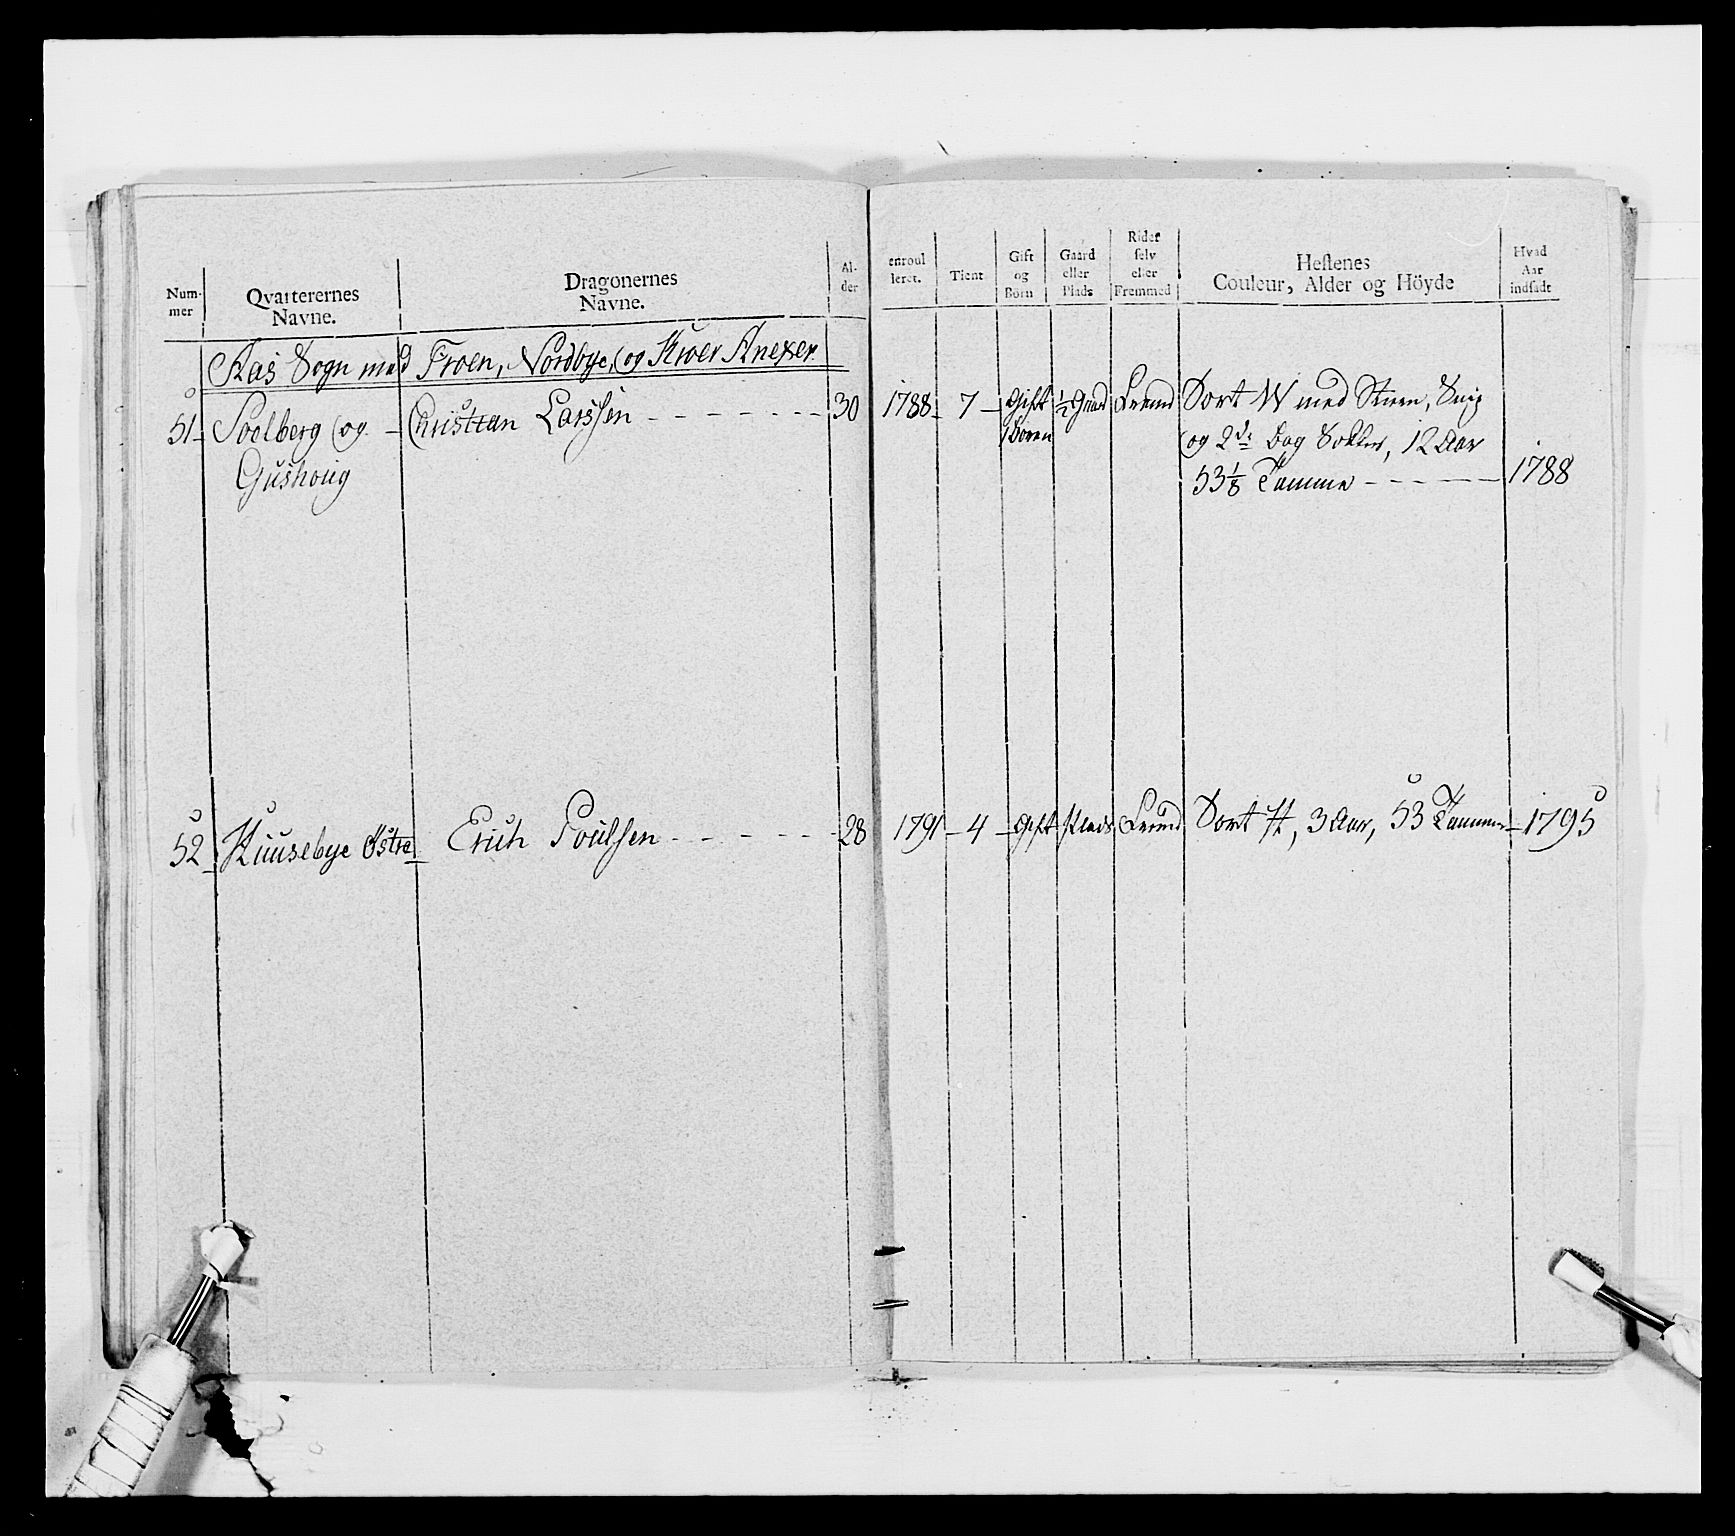 Num-
mer
Qvarterernes
Navne.
Dragonernes
Navne.
Al-
der
enroul
leret.
Tient
Gift
og
Börn
Gaard
eller
Plads
Rider
selv
eller
Fremmed
Hestenes
Couleur, Alder og Höyde
Hvad
Aar
indsadt
Aas Sogn med Froen, Nordbye, og Kroer Anexer.
51 Soelberg og Christian Larssen 30 1788 7 Gift ½ Gaard Fremd Sort W med Stiern, Snip
1 Barn og 2de Bag Sokker, 12 Aar
Gushoug 53⅛ Tomme 1788
52 Kuusebye Östre Erich Poulsen 28 1791 4 Gift Plads Fremd Sort H, 3 Aar, 53 Tommer 1795